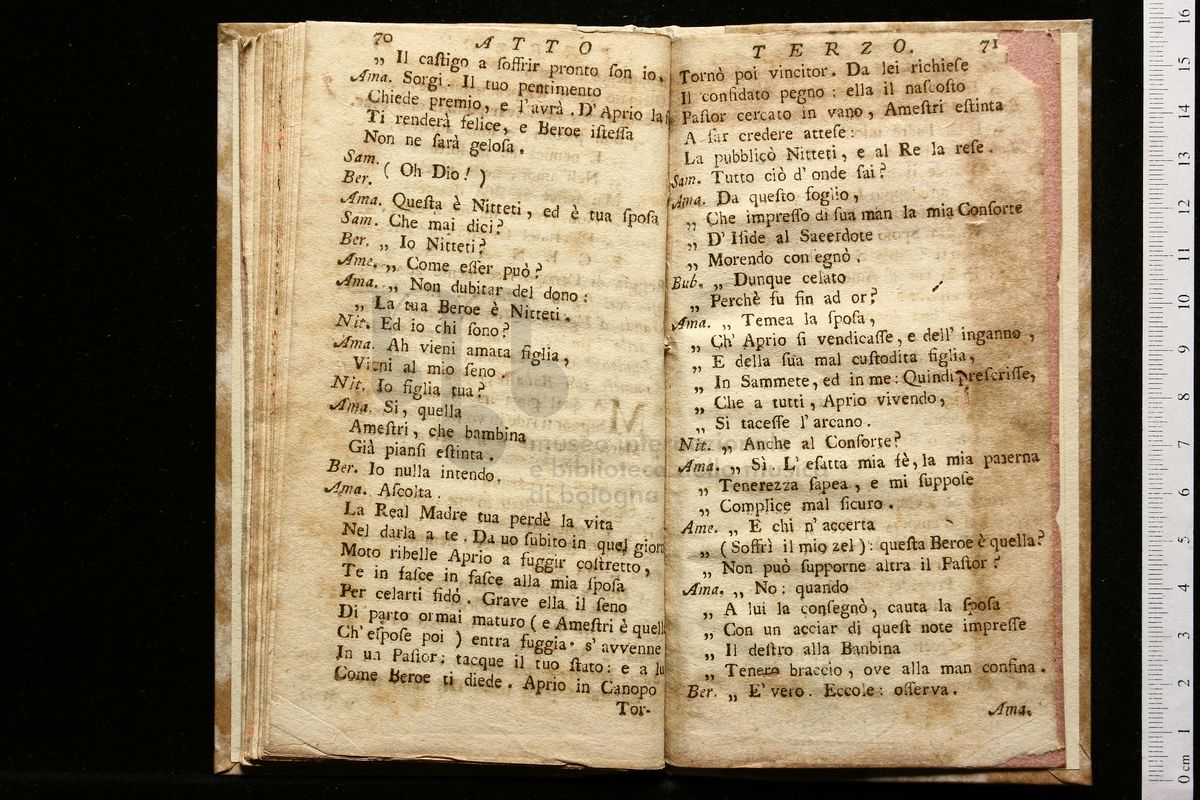 70 ATTO
„ Il caſtigo a ſoffrir pronto ſon io.
Ama. Sorgi. Il tuo pentimento
Chiede premio, e l'avrà. D' Aprio la
Ti renderà felice, e Beroe iſteſſa
Non ne ſarà geloſa.
Sam.
Ber. ( Oh Dio! )
Ama. Queſta è Nitteti, ed è tua ſpoſa
Sam. Che mai dici?
Ber. „ Io Nitteti?
Ame. „ Come eſſer può?
Ama. „ Non dubitar del dono:
„ La tua Beroe è Nitteti.
Nit. Ed io chi ſono?
Ama. Ah vieni amata figlia,
Vieni al mio ſeno.
Nit. Io figlia tua?
Ama. Sì, quella
Ameſtri, che bambina
Già pianſi eſtinta.
Ber. Io nulla intendo.
Ama. Aſcolta.
La Real Madre tua perdè la vita
Nel darla a te. Da uo ſubito in quel giorn
Moto ribelle Aprio a fuggir coſtretto,
Te in faſce in faſce alla mia ſpoſa
Per celarti fidò. Grave ella il ſeno
Di parto ormai maturo ( e Ameſtri è quell
Ch' eſpoſe poi ) entra fuggia. s' avvenne
In un Paſtor: tacque il tuo ſtato: e a lu
Come Beroe ti diede. Aprio in Canopo
Tor-
TERZO. 71
Tornò poi vincitor. Da lei richieſe
Il confidato pegno: ella il naſcoſto
Paſtor cercato in vano, Ameſtri eſtinta
A far credere atteſe:
La pubblicò Nitteti, e al Re la reſe.
Sam. Tutto ciò d' onde ſai?
Ama. Da queſto foglio,
„ Che impreſſo di ſua man la mia Conſorte
„ D' Iſide al Sacerdote
„ Morendo conſegnò.
Bub. „ Dunque celato
„ Perchè fu fin ad or?
Ama. „ Temea la ſpoſa,
„ Ch' Aprio ſi vendicaſſe, e dell' inganno,
„ E della ſua mal cuſtodita figlia,
„ In Sammete, ed in me: Quindi preſcriſſe,
„ Che a tutti, Aprio vivendo,
„ Si taceſſe l' arcano.
Nit. „ Anche al Conſorte?
Ama. „ Sì. L' eſatta mia fè, la mia paterna
„ Tenerezza ſapea, e mi ſuppoſe
„ Complice mal ſicuro.
Ame. „ E chi n' accerta
„ ( Soffrì il mio zel ): queſta Beroe è quella?
„ Non può ſupporne altra il Paſtor?
Ama. „ No: quando
„ A lui la conſegnò, cauta la ſpoſa
„ Con un acciar di queſt note impreſſe
„ Il deſtro alla Banbina
„ Tenero braccio, ove alla man confina.
Ber. „ E' vero. Eccole: oſſerva.
Ama.
museo internazionale
e biblioteca della musica
di bologna